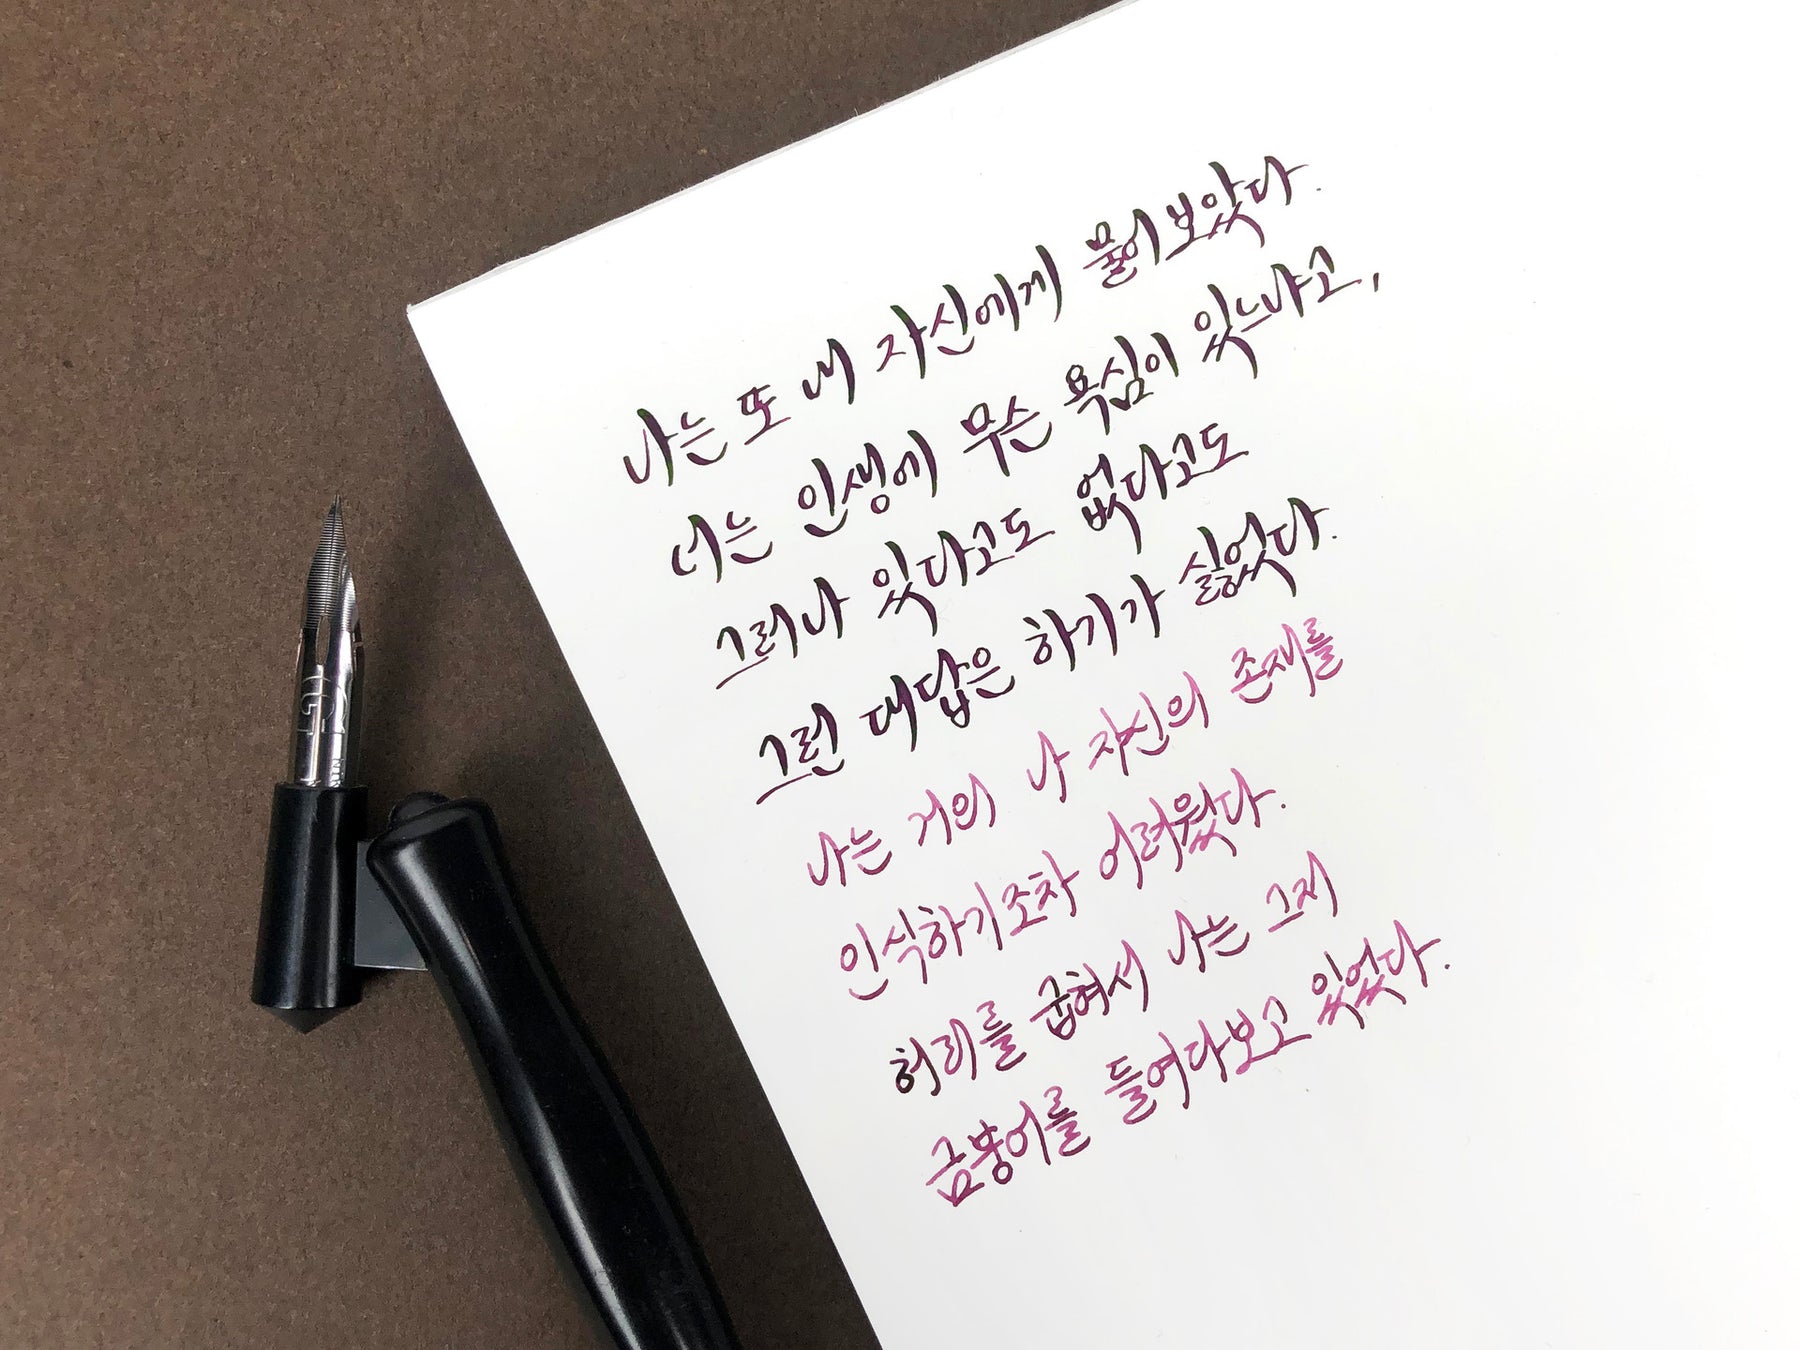 나는 또 내 자신에게 물어 보았다.
너는 인생에 무슨 욕심이 있느냐고,
그러나 있다고도 없다고도
그런 대답은 하기가 싫었다.
나는 거의 나 자신의 존재를
인식하기조차 어려웠다.
허리를 굽혀서 나는 그저
금붕어를 들여다보고 있었다.